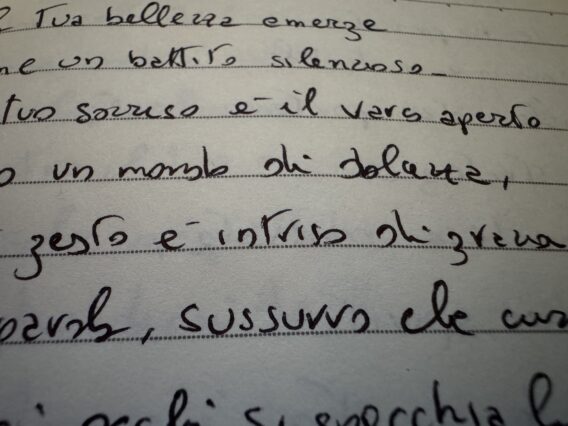 Tua bellezza emerge
un battito silenzioso.
tuo sorriso è il varco aperto
un mondo di dolcezze,
gesto è intriso di grazia
sussurro che
occhi si specchia